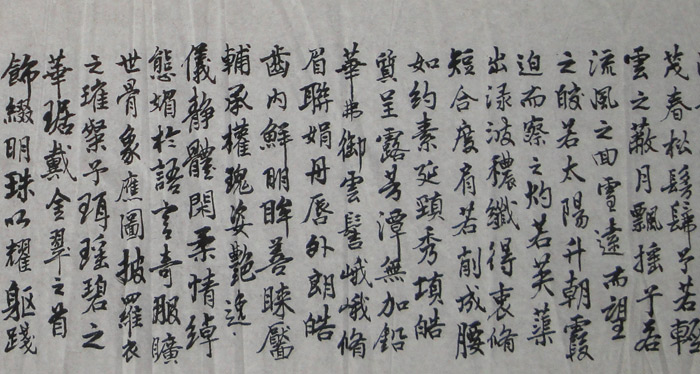 茂春松髣髴兮若輕
雲之蔽月飄搖兮若
流風之回雪遠而望
之皎若太陽升朝霞
迫而察之灼若芙蕖
出渌波穠纖得衷脩
短合度肩若削成腰
如約素延頸秀項皓
質呈露芳澤無加鉛
華弗御雲髻峨峨脩
眉聯娟丹唇外朗皓
齒內鮮明眸善睞靨
輔承權瑰姿艷逸
儀靜體閑柔情綽
態媚於語言奇服曠
世骨象應圖披羅衣
之璀粲兮珥瑤碧之
華琚戴金翠之首
飾綴明珠以耀軀踐